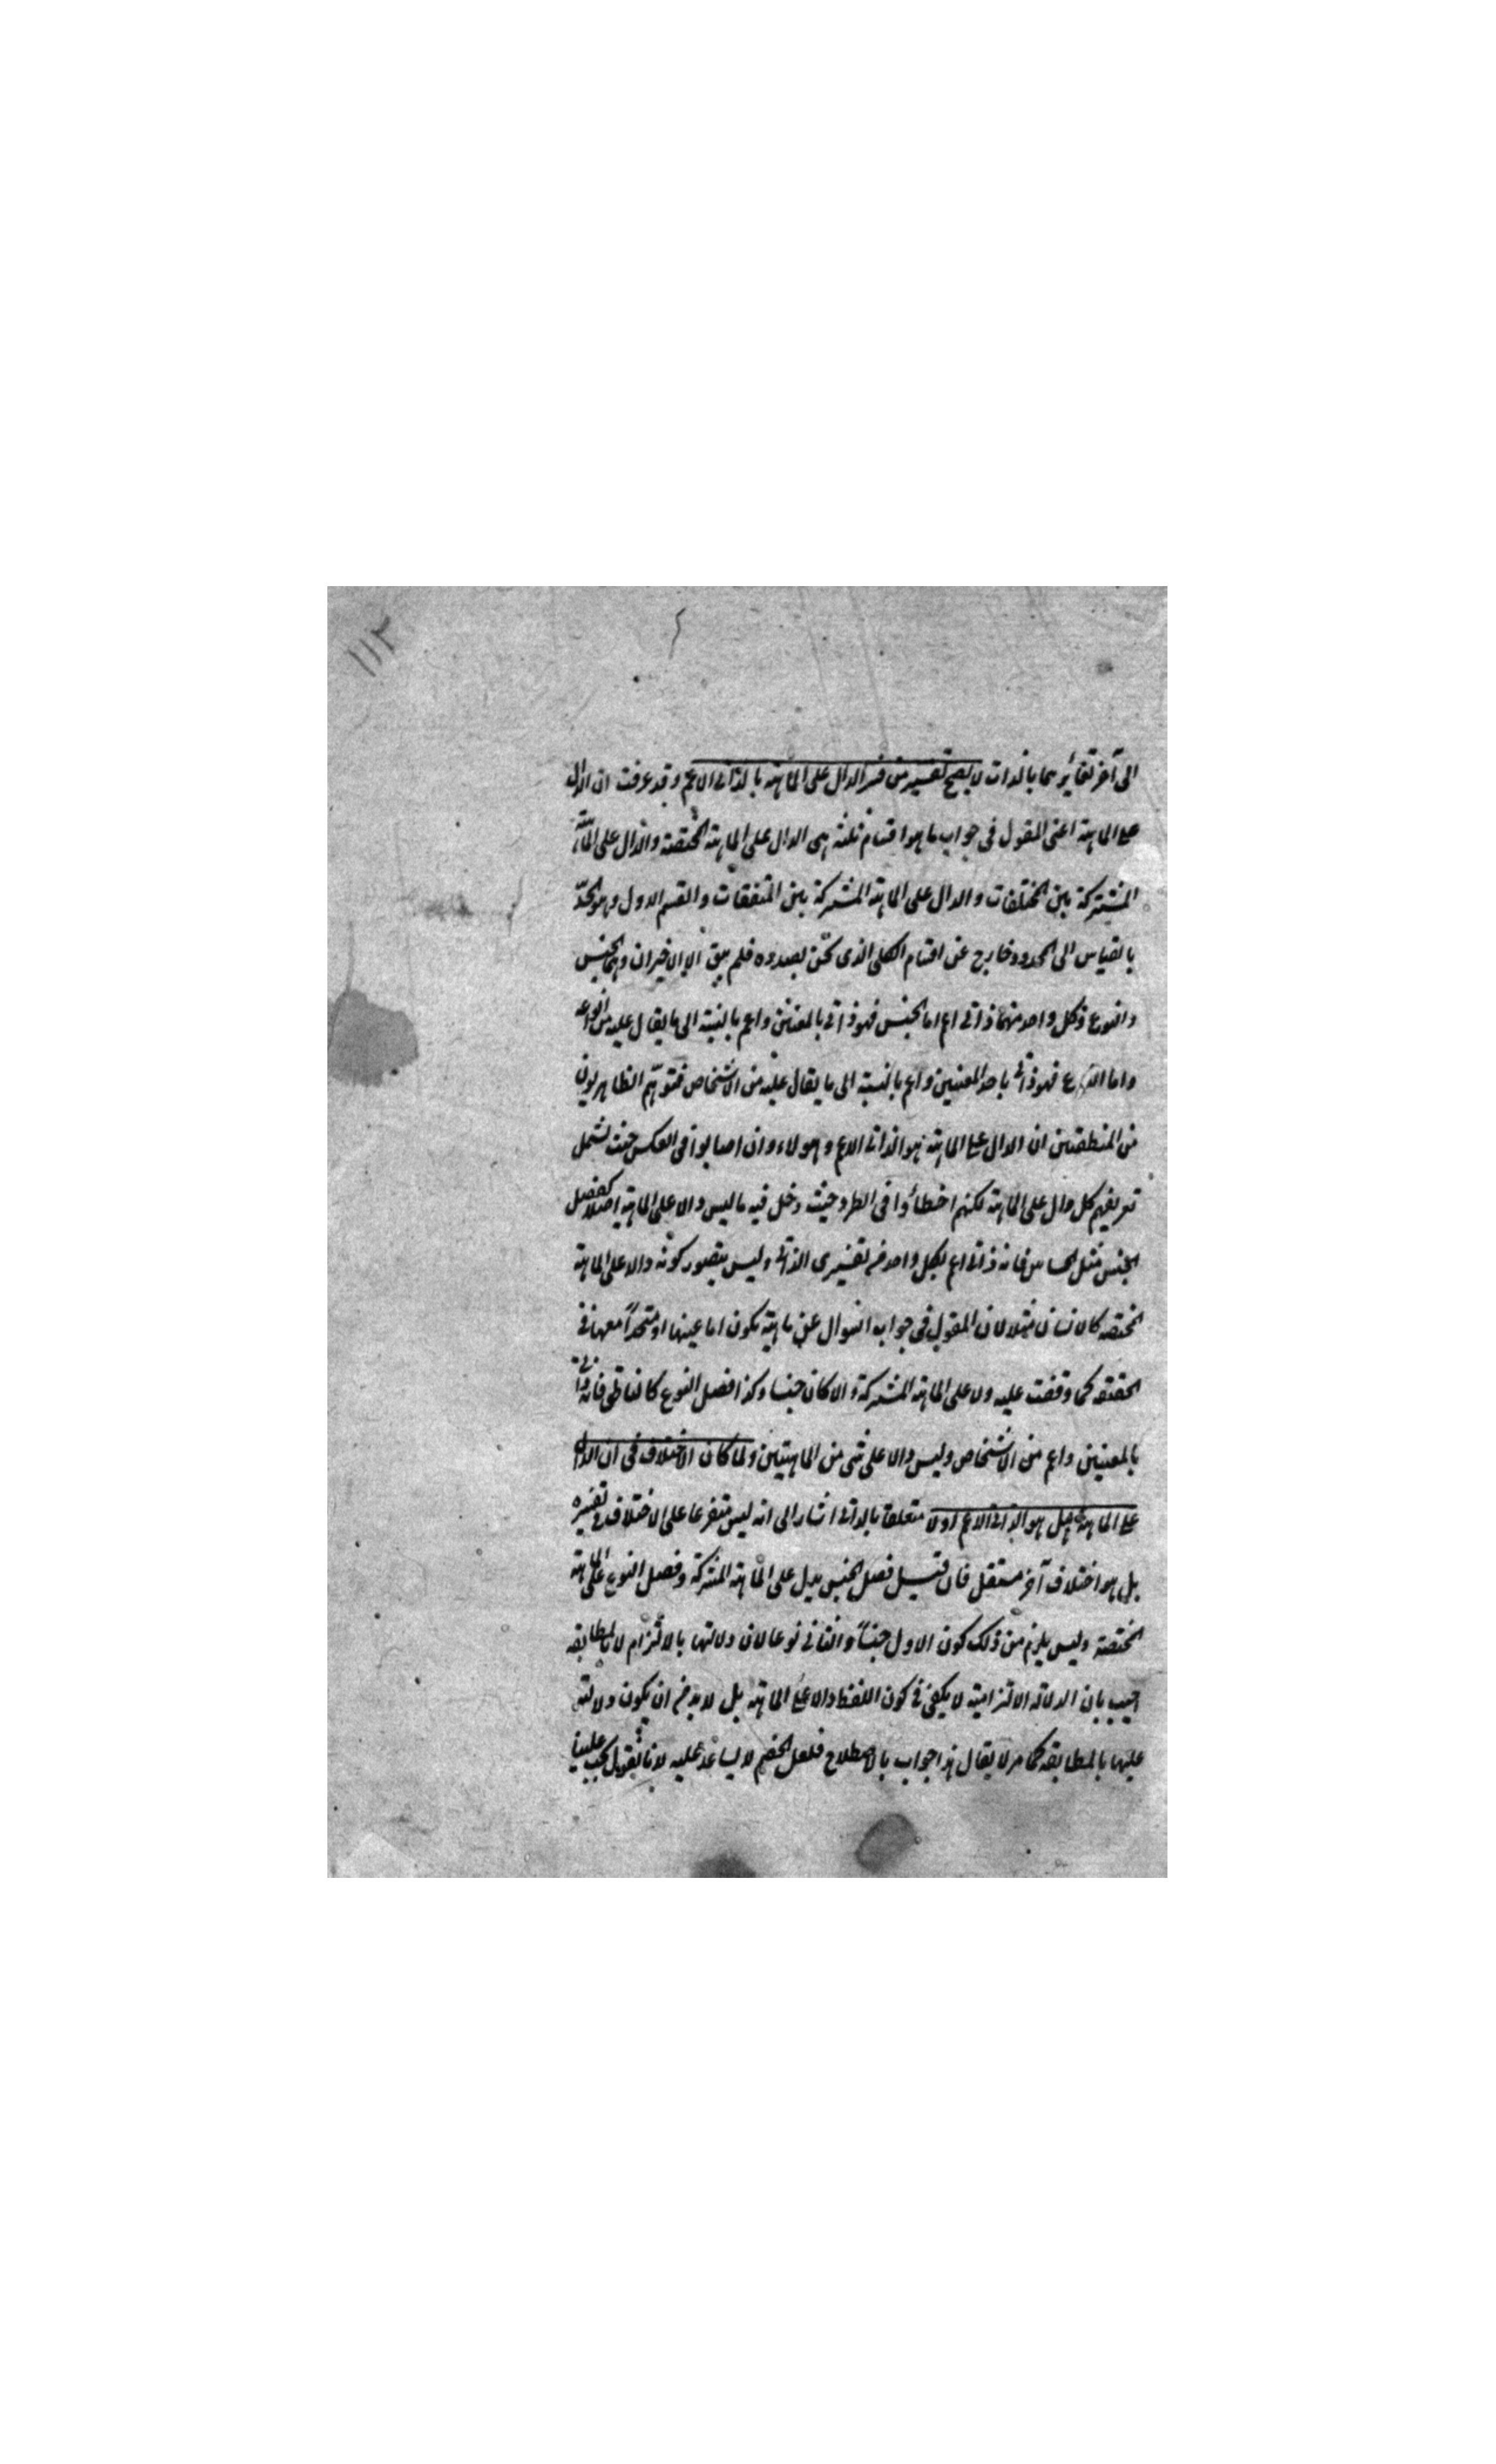 ١١٢
الى آخر تغايرهما بالذات لا يصح تفسير من فسر الدال على الماهية بالذاتي الاعم وقد عرفت ان الدال
على الماهية اعنى المقول فى جواب ما هو اقسام ثلثة هى الدال على الماهية المختصة والدال على الماهية
المشتركة بين المختلفات والدال على الماهية المشتركة بين المتفقات والقسم الاول وهو الحد
بالقياس الى المحدود خارج عن اقسام الكلى الذى نحن بصدده فلم يبق الا الاخيران وهما الجنس
والنوع وكل واحد منهما ذاتى اعم اما الجنس فهو ذاتى بالمعنيين واعم بالنسبة الى ما يقال عليه من انواعه
واما النوع فهو ذاتى باحد المعنيين واعم بالنسبة الى ما يقال عليه من الاشخاص فتوهم الظاهريون
من المنطقيين ان الدال على الماهية هو الذاتى الاعم وهولاء وان اصابوا فى العكس حيث يشمل
تعريفهم كل دال على الماهية لكنهم اخطأوا فى الطرد حيث دخل فيه ما ليس دالا على الماهية اصلا كفصل
الجنس مثل الحساس فانه ذاتى اعم بكل واحد من تفسيرى الذاتى وليس يتصور كونه دالا على الماهية
المختصه كالانسان مثلا لان المقول فى جواب السوال عن ماهية يكون اما عينها او متحدا معها فى
الحقيقة كما وقفت عليه ولا على الماهية المشتركة والا كان جنسا وكذا فصل النوع كالناطق فانه ذاتى
بالمعنيين واعم من الاشخاص وليس دالا على شى من الماهيتين ولما كان الاختلاف فى ان الدال
على الماهية هل هو الذاتى الاعم اولا متعلقا بالذاتى اشار الى انه ليس متفرعا على الاختلاف فى تفسيره
بل هو اختلاف آخر مستقل فان قيل فصل الجنس يدل على الماهية المشتركة وفصل النوع على الماهية
المختصة وليس يلزم من ذلك كون الاول جنسا والثانى نوعا لان دلالتها بالالتزام لا بالمطابقه
اجيب بان الدلالة الالتزامية لا يكفى فى كون اللفظ دالا على الماهية بل لا بد من ان يكون دلالته
عليها بالمطابقه كما مر لا يقال هذا جواب بالاصطلاح فلعل الخصم لا يساعد عليه لانا نقول يجب علينا